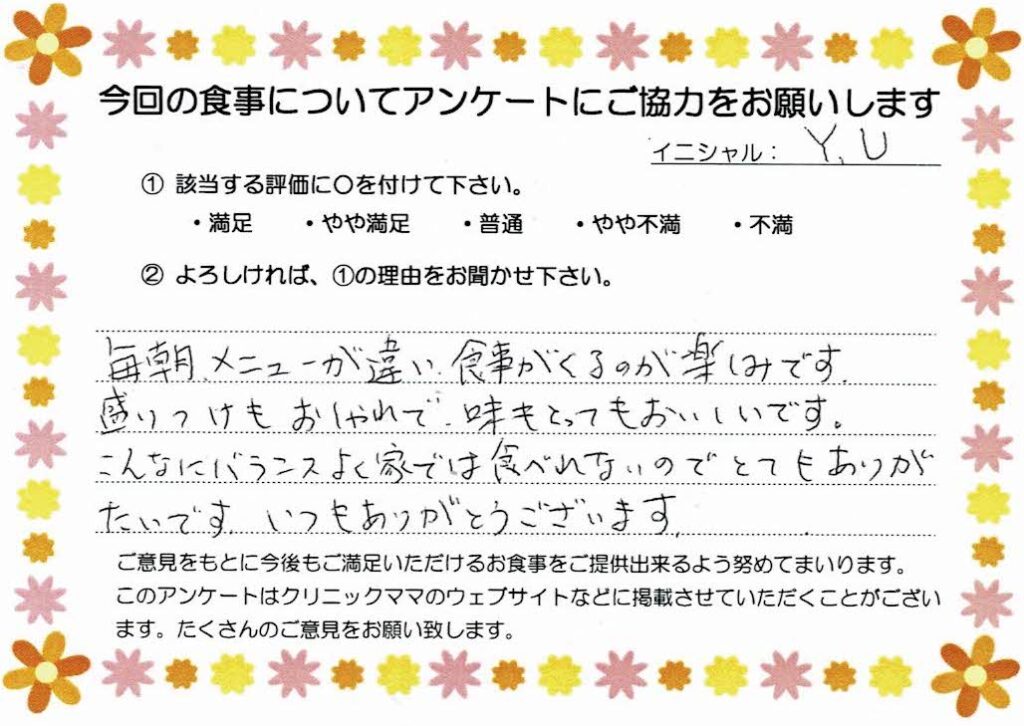 今回の食事についてアンケートにご協力をお願いします
イニシャル： Y. U
① 該当する評価に〇を付けて下さい。
・満足 ・やや満足 ・普通 ・やや不満 ・不満
② よろしければ、①の理由をお聞かせ下さい。
毎朝、メニューが違い、食事がくるのが楽しみです。
盛りつけもおしゃれで、味もとってもおいしいです。
こんなにバランスよく家では食べれないのでとてもありが
たいです。いつもありがとうございます。
ご意見をもとに今後もご満足いただけるお食事をご提供出来るよう努めてまいります。
このアンケートはクリニックママのウェブサイトなどに掲載させていただくことがござい
ます。たくさんのご意見をお願い致します。